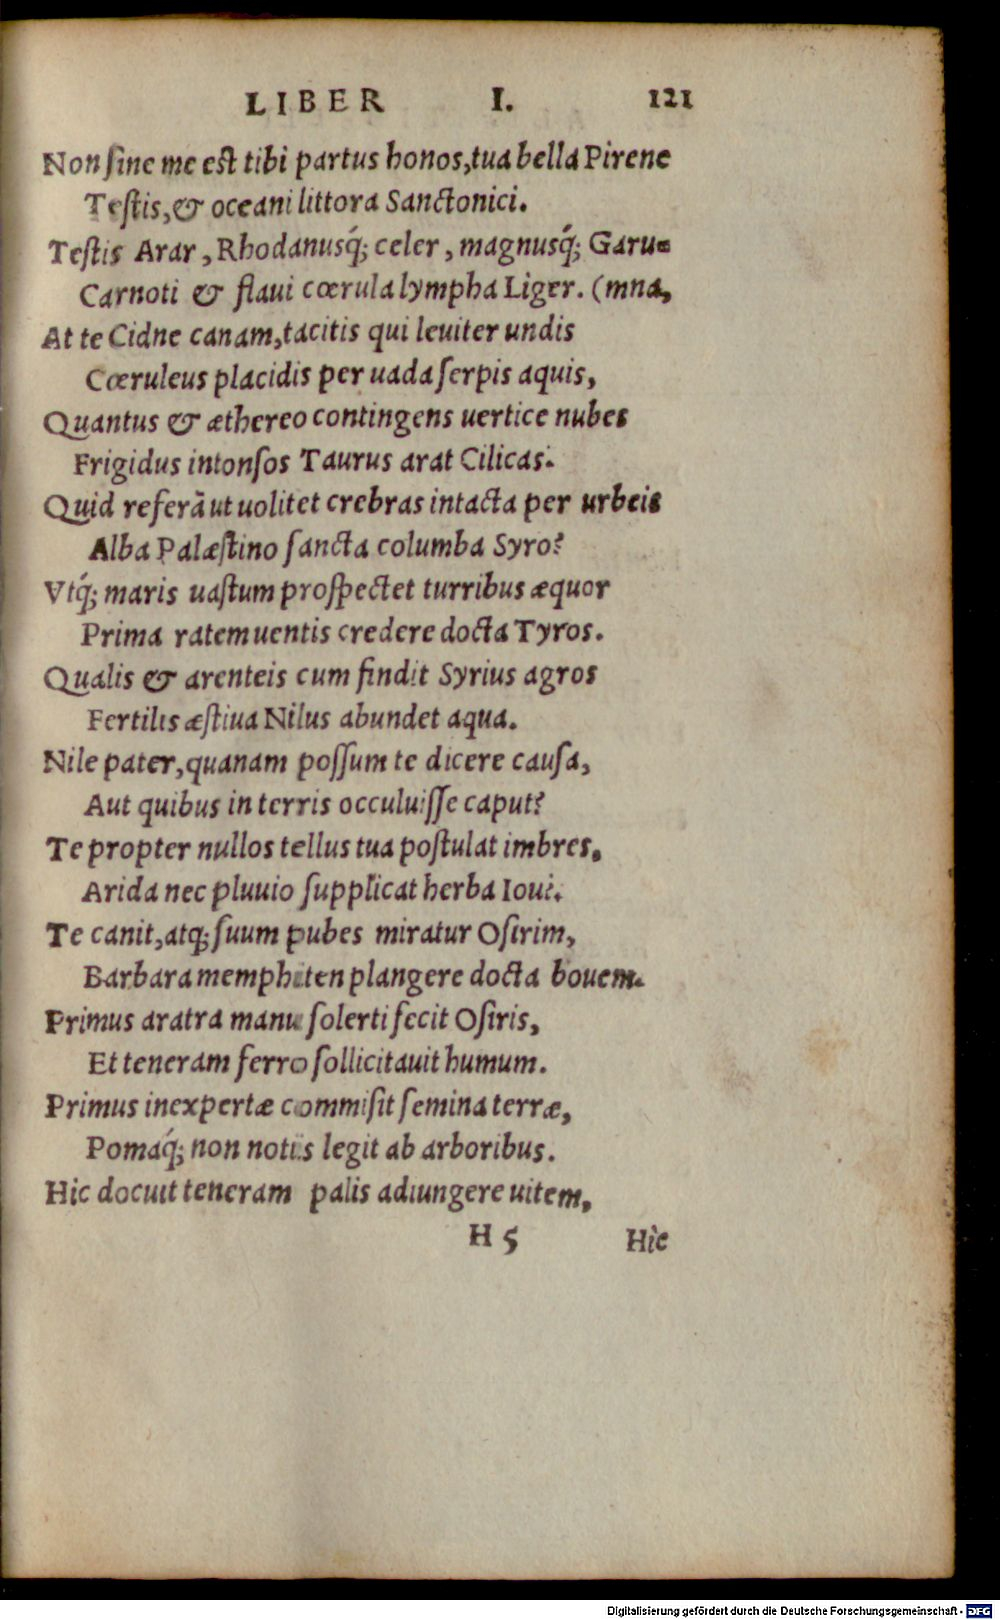 LIBER I. 121
Non ſine me est tibi partus honos, tua bella Pirene
Teſtis, & oceani littora Sanctonici.
Teſtis Arar, Rhodanusq́; celer, magnusq́; Garu-
Carnoti & flaui cœrula lympha Liger. (mna,
At te Cidne canam, tacitis qui leuiter undis
Cœruleus placidis per uada ſerpis aquis,
Quantus & æthereo contingens uertice nubes
Frigidus intonſos Taurus arat Cilicas.
Quid referā ut uolitet crebras intacta per urbeis
Alba Palæſtino ſancta columba Syro?
Vtq́; maris uaſtum proſpectet turribus æquor
Prima ratem uentis credere docta Tyros.
Qualis & arenteis cum findit Syrius agros
Fertilis æſtiua Nilus abundet aqua.
Nile pater, quanam poſſum te dicere cauſa,
Aut quibus in terris occuluiſſe caput?
Te propter nullos tellus tua poſtulat imbres,
Arida nec pluuio ſupplicat herba Ioui.
Te canit, atq; ſuum pubes miratur Oſirim,
Barbara memphiten plangere docta bouem.
Primus aratra manu ſolerti fecit Oſiris,
Et teneram ferro ſollicitauit humum.
Primus inexpertæ commiſit ſemina terræ,
Pomaq́; non notis legit ab arboribus.
Hic docuit teneram palis adiungere uitem,
H 5 Hic
Digitalisierung gefördert durch die Deutsche Forschungsgemeinschaft - DFG